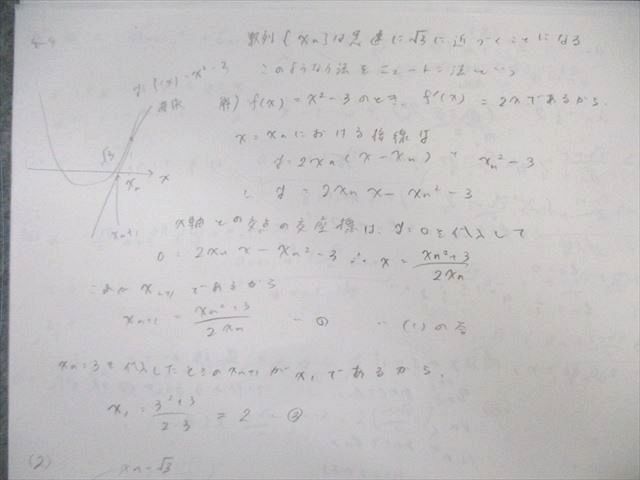 数列{xn}は急速に√3に近づくことになる
このような方法をニュートン法という
y=f(x)=x²-3
接線
解) f(x)=x²-3のとき, f'(x)=2xであるから
x=xnにおける接線は
y=2xn(x-xn) + xn²-3
∴ y=2xn x-xn²-3
√3
xn
x
xn+1
x軸との交点の座標は, y=0を代入して
0=2xn x-xn²-3 ∴ x=\frac{xn²+3}{2xn}
これが xn+1 であるから
xn+1=\frac{xn²+3}{2xn} … ① … (1)の答
xn=3を代入したときのxn+1がx₁であるから,
x₁=\frac{3²+3}{2·3}=2 … ②
(2)
xn-√3